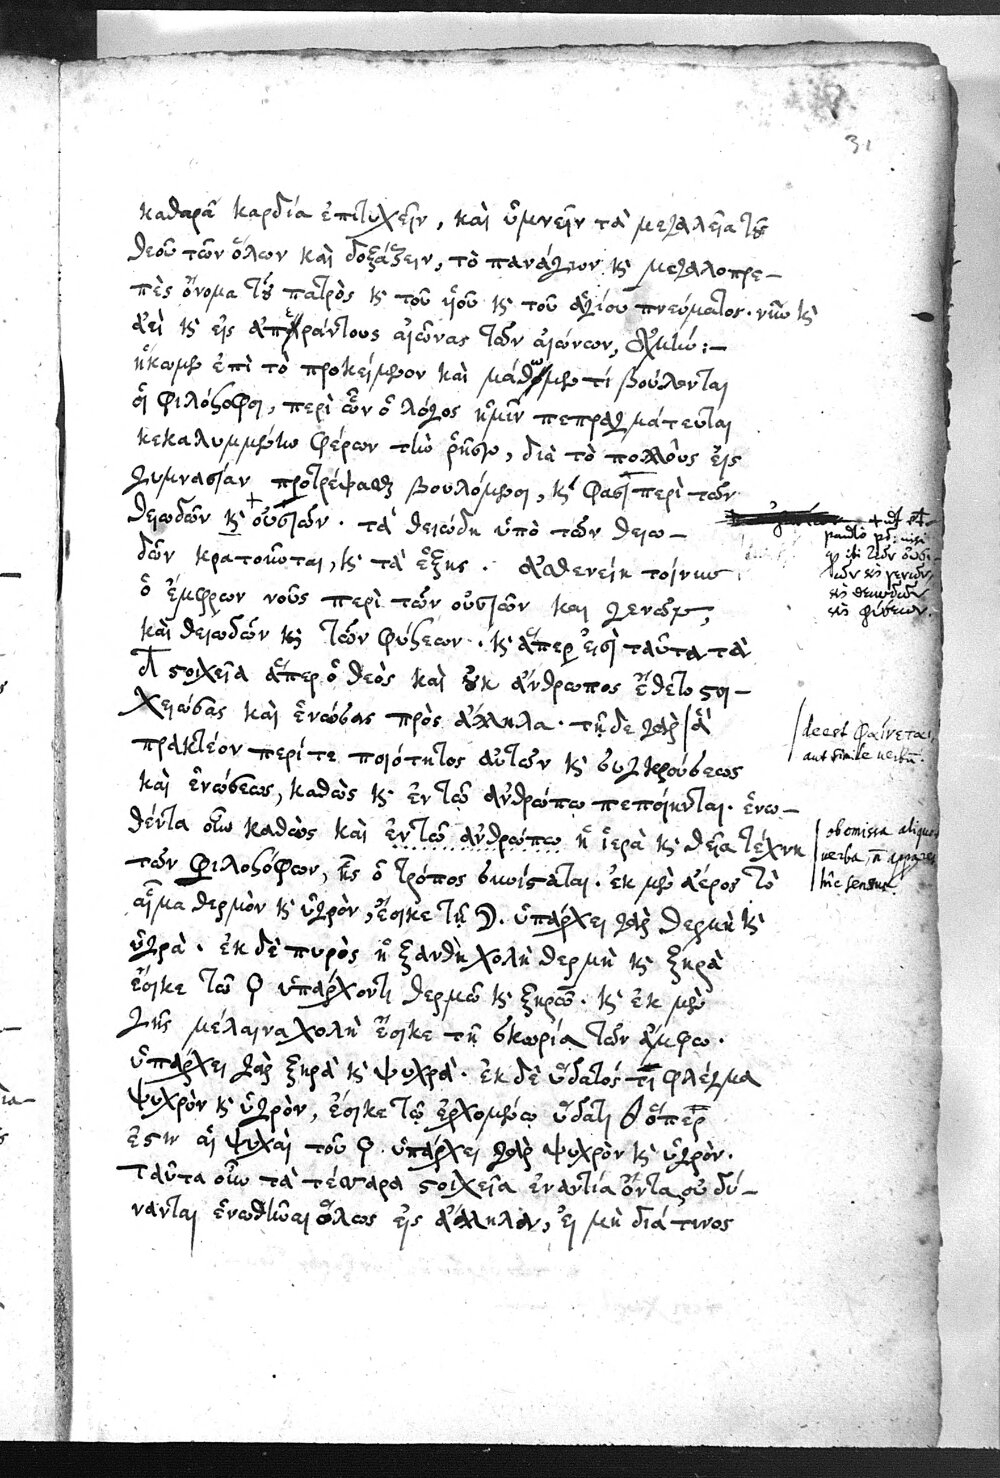 31
καθαρᾷ καρδίᾳ ἐπιτυχεῖν, καὶ ὑμνεῖν τὰ μεγαλεῖα τοῦ
θεοῦ τῶν ὅλων καὶ δοξάζειν, τὸ πανάγιον κ̀ μεγαλοπρε-
πὲς ὄνομα τοῦ πατρὸς κ̀ τοῦ υἱοῦ κ̀ τοῦ ἁγίου πνεύματος. νῦν κ̀
ἀεὶ κ̀ εἰς ἀπεράντους αἰῶνας τῶν αἰώνων, ἀμήν:-
ἥκωμεν ἐπὶ τὸ προκείμενον καὶ μάθωμεν τί βούλονται
οἱ φιλόσοφοι, περὶ ὧν ὁ λόγος ἡμῖν πεπραγμάτευται
κεκαλυμμένην φέρων τὴν ῥῆσιν, διὰ τὸ πολλοὺς εἰς
γυμνασίαν προτρέψασθαι βουλόμενοι, κ̀ φασὶ περὶ τῶν
θειωδῶν κ̀ + οὐσιῶν. τὰ θειώδη ὑπὸ τῶν θειω-
δῶν κρατοῦνται, κ̀ τὰ ἑξῆς. τοίνυν
ὁ ἔμφρων νοῦς περὶ τῶν οὐσιῶν καὶ γενῶν,
καὶ θειωδῶν κ̀ τῶν φύσεων. κ̀ ἅπερ εἰσὶ ταῦτα τὰ
δ στοιχεῖα ἅπερ ὁ θεὸς καὶ οὐκ ἄνθρωπος ἔθετο στοι-
χειώσας καὶ ἑνώσας πρὸς ἄλληλα. τῇδε γὰρ | ἃ
πρακτέον περί τε ποιότητος αὐτῶν κ̀ συγκρούσεως
καὶ ἑνώσεως, καθὼς κ̀ ἐν τῷ ἀνθρώπῳ πεποίηνται. ἑνω-
θέντα οὖν καθὼς καὶ ἐν τῷ ἀνθρώπῳ ἡ ἱερὰ κ̀ θεία τέχνη
τῶν φιλοσόφων, ὁ τρόπος συνίσταται. ἐκ μὲν ἀέρος τὸ
αἷμα θερμὸν κ̀ ὑγρὸν, ἔοικε τῇ ☽. ὑπάρχει γὰρ θερμὴ κ̀
ὑγρὰ. ἐκ δὲ πυρὸς ἡ ξανθὴ χολὴ θερμὴ κ̀ ξηρὰ
ἔοικε τῷ ♀ ὑπάρχοντι θερμῷ κ̀ ξηρῷ. κ̀ ἐκ μὲν
γῆς μέλαινα χολὴ ἔοικε τῇ σκωρίᾳ τῶν ἄμφω.
ὑπάρχει γὰρ ξηρὰ κ̀ ψυχρά. ἐκ δὲ ὕδατός τι φλέγμα
ψυχρὸν κ̀ ὑγρὸν, ἔοικε τῷ ἐρχομένῳ ὕδατι ὅπερ
ἐστιν αἱ ψυχαὶ τοῦ ♀. ὑπάρχει γὰρ ψυχρὸν κ̀ ὑγρὸν.
ταῦτα οὖν τὰ τέσσαρα στοιχεῖα ἐναντία ὄντα, οὐ δύ-
νανται ἑνωθῆναι ὅλως εἰς ἄλληλον, εἰ μὴ διά τινος
paulo
τῶν οὐσι-
ῶν κ̀ γενῶν
κ̀ θειωδῶν
κ̀ φύσεων.
deest φαίνεται
aut simile verbũ.
ob omissa aliqua
verba, ñ apparet
hîc sensus.